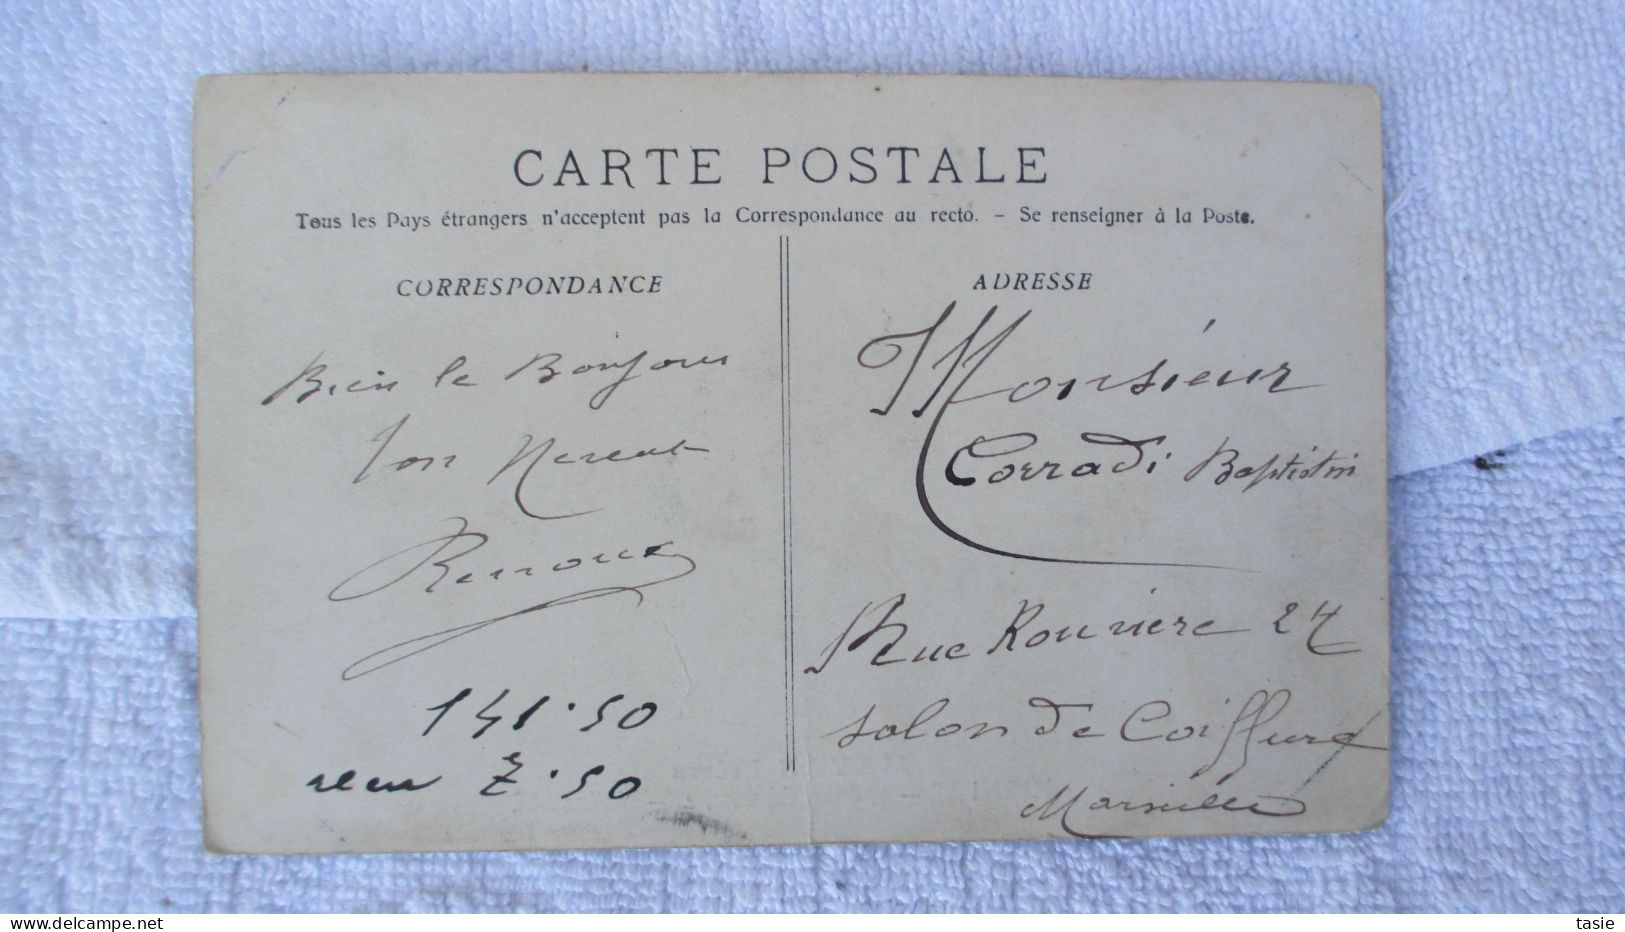 CARTE POSTALE
Tous les Pays étrangers n'acceptent pas la Correspondance au recto. - Se renseigner à la Poste.
CORRESPONDANCE
Bien le Bonjour
Ton
Renoux
141.50
7.50
ADRESSE
Monsieur
Corradi Baptistin
Rue Rouviere 24
salon de Coiffure
Marseille
www.delcampe.net
tasie